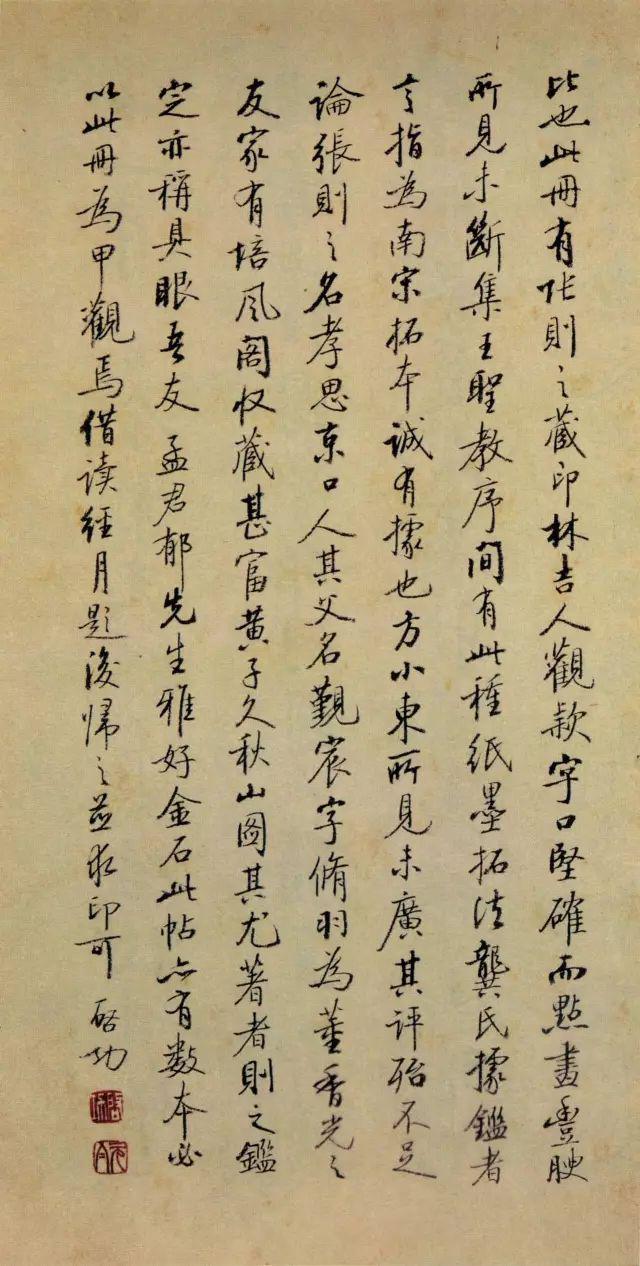 比也此冊有張則之藏印林吉人觀款字口堅確而點畫豐腴
所見未斷集王聖教序間有此種紙墨拓法龔氏據鑑者
言指為南宋拓本誠有據也方小東所見未廣其評殆不足
論張則之名孝思京口人其父名覲宸字脩羽為董香光之
友家有培風閣收藏甚富黃子久秋山圖其尤著者則之鑑
定亦稱具眼吾友孟君郁先生雅好金石此帖亦有数本必
以此冊為甲觀焉借读經月題後歸之並求印可 啓功